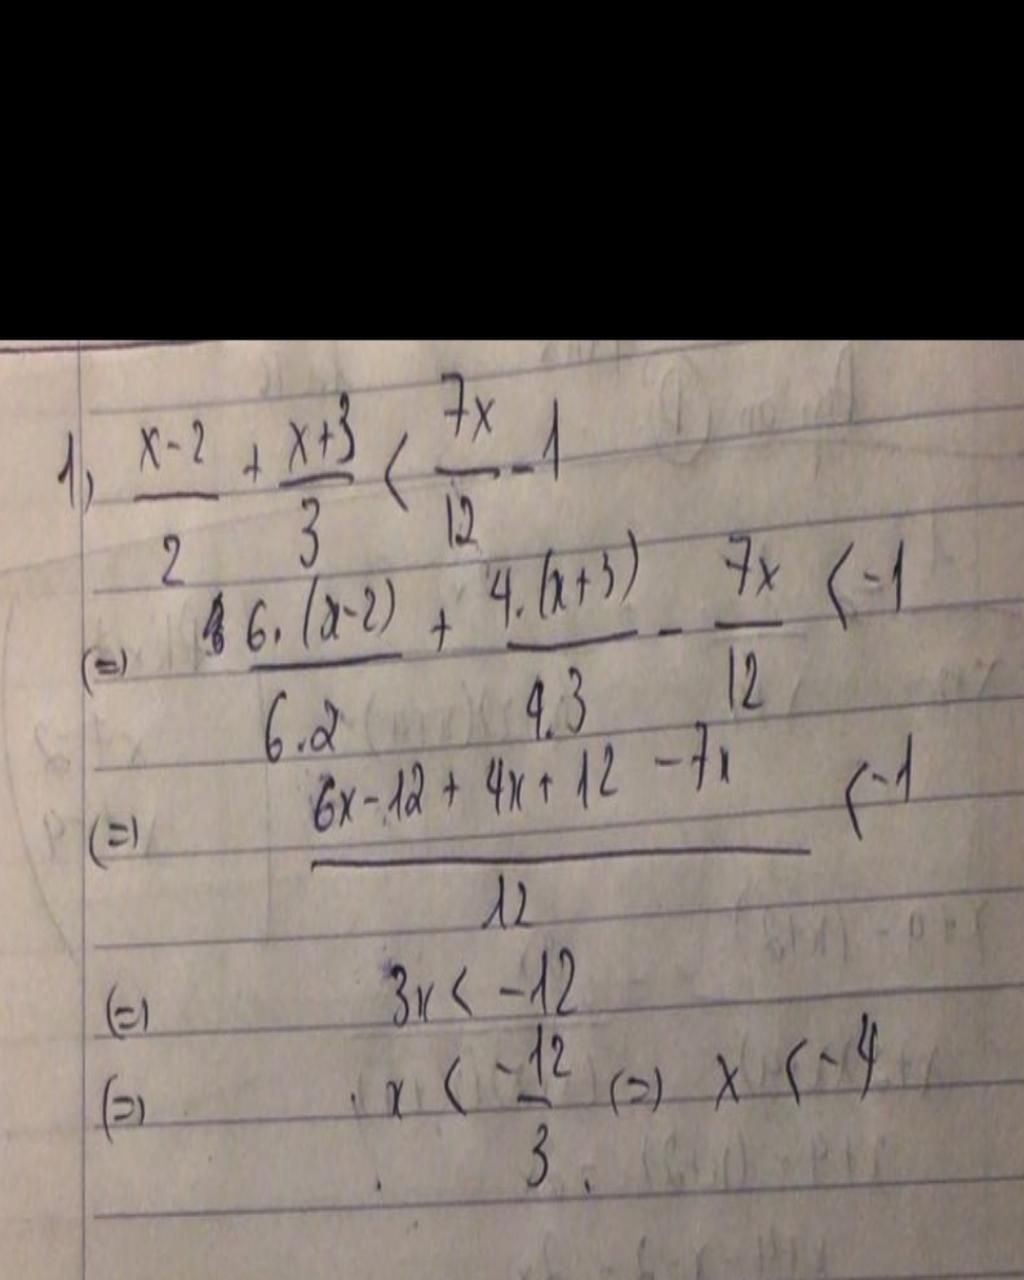 1, (x-2)/2 + (x+3)/3 < 7x/12 - 1
(=) 6.(x-2)/6.2 + 4.(x+3)/4.3 - 7x/12 < -1
(=) (6x-12 + 4x + 12 - 7x)/12 < -1
(=) 3x < -12
(=) x < -12/3 (=) x < -4